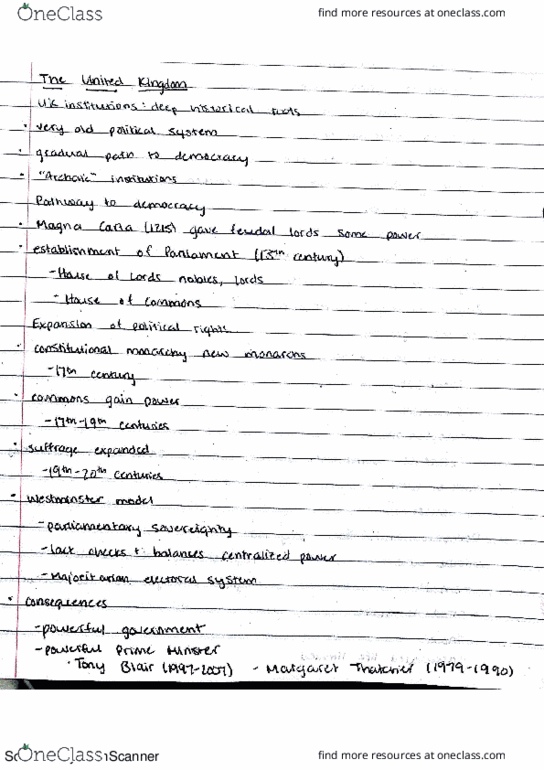 OneClass
find more resources at oneclass.com
The United Kingdom
UK institutions: deep historical roots
· very old political system
· gradual path to democracy
· "Archaic" institutions
Pathway to democracy
· Magna Carta (1215) gave feudal lords some power
· establishment of Parliament (13th century)
- House of Lords nobles, lords
- House of commons
Expansion of political rights
· constitutional monarchy new monarchs
- 17th century
· commons gain power
- 17th-19th centuries
· suffrage expanded
- 19th-20th centuries
· Westminster model
- parliamentary sovereignty
- lack checks + balances centralized power
- Majoritarian electoral system
· consequences
- powerful government
- powerful Prime Minister
· Tony Blair (1997-2007) - Margaret Thatcher (1979-1990)
OneClass
Scanner
find more resources at oneclass.com